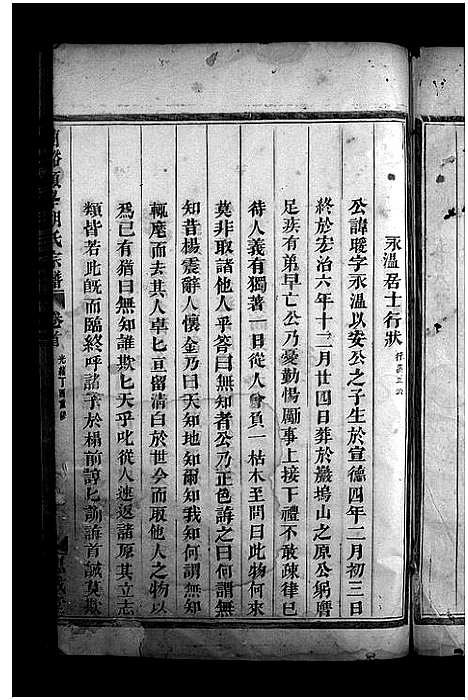 永溫居士行狀
公諱曖字永溫以安公之子生於宣德四年二月初三日
終於宏治六年十二月廿四日葬於巖塢山之原公躬膺
足疾有弟早亡公乃憂勤惕勵事上接下禮不敢疎律己
待人義有獨著一日從人會負一枯木至問曰此物何來
莫非取諸他人乎答曰無知者公乃正色誨之曰何謂無
知昔楊震辭人懷金乃曰天知地知爾知我知何謂無知
輒麾而去其人卓匕亘留清白於世今而取他人之物以
為已有猶曰無知誰欺匕天乎叱從人速返諸原其立志
類皆若此既而臨終呼諸子於榻前諄匕誨首誠莫欺
胡氏宗譜
卷首
光緒丁酉重修